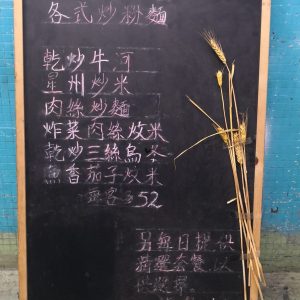 各式炒粉麵
乾炒牛河
星州炒米
肉絲炒麵
炸菜肉絲炆米
乾炒三絲烏冬
魚香茄子炆米
52
另每日提供
精選套餐以
供選擇